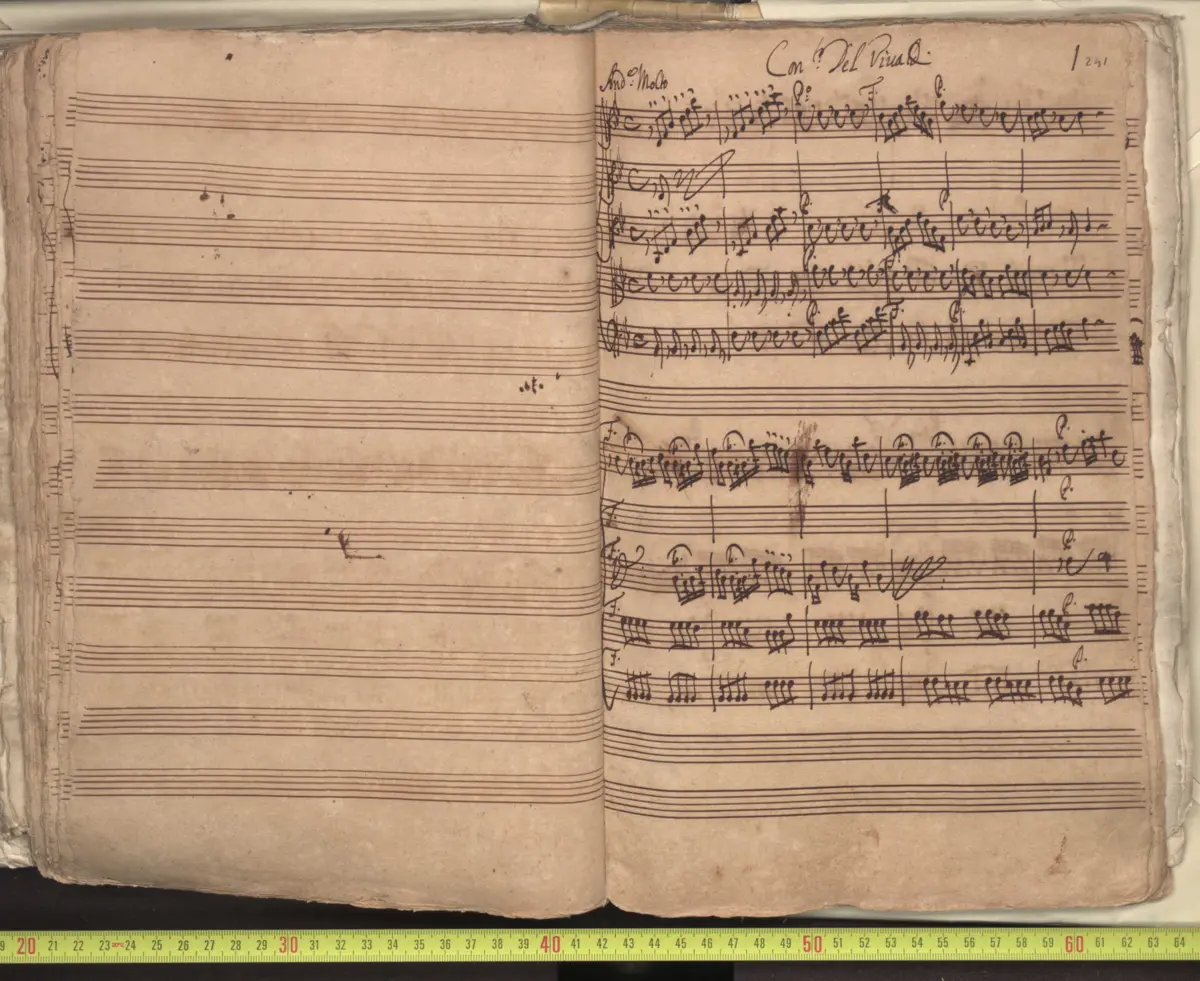 Con.º Del Viualdi
1 241
And.º Molto
P.º F. P.
P. F. P.
P. F.
P. F. P.
F. P.
F. P.
F. P.
F. P.
F. P.
19 20 21 22 23 24 25 26 27 28 29 30 31 32 33 34 35 36 37 38 39 40 41 42 43 44 45 46 47 48 49 50 51 52 53 54 55 56 57 58 59 60 61 62 63 64